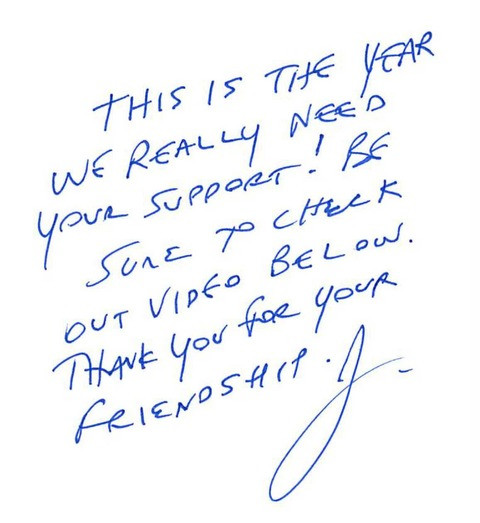 THIS IS THE YEAR
WE REALLY NEED
YOUR SUPPORT! BE
SURE TO CHECK
OUT VIDEO BELOW.
THANK YOU FOR YOUR
FRIENDSHIP. J-